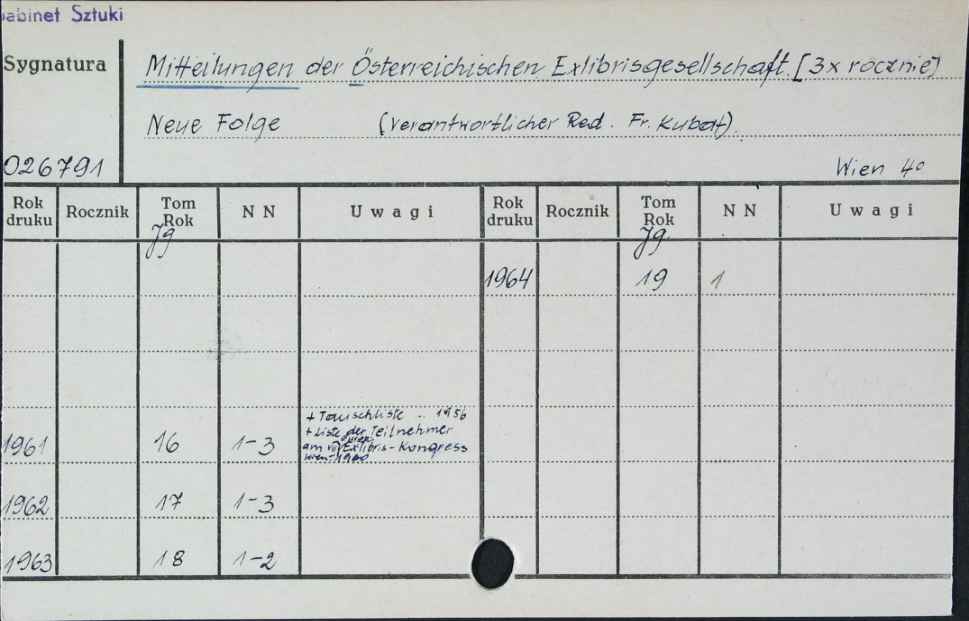 Gabinet Sztuki
Sygnatura
Mitteilungen der Österreichischen Exlibrisgesellschaft. [3x rocznie]
Neue Folge (Verantwortlicher Red. Fr. Kubat).
026791
Wien 4°
Rok druku Rocznik Tom Rok N N Uwagi Rok druku Rocznik Tom Rok N N Uwagi
Jg Jg.
1964 19 1
+ Tauschliste .. 1956
+ Liste der Teilnehmer
1961 16 1-3 am Exlibris-Kongress
Wien-1960
1962 17 1-3
1963 18 1-2